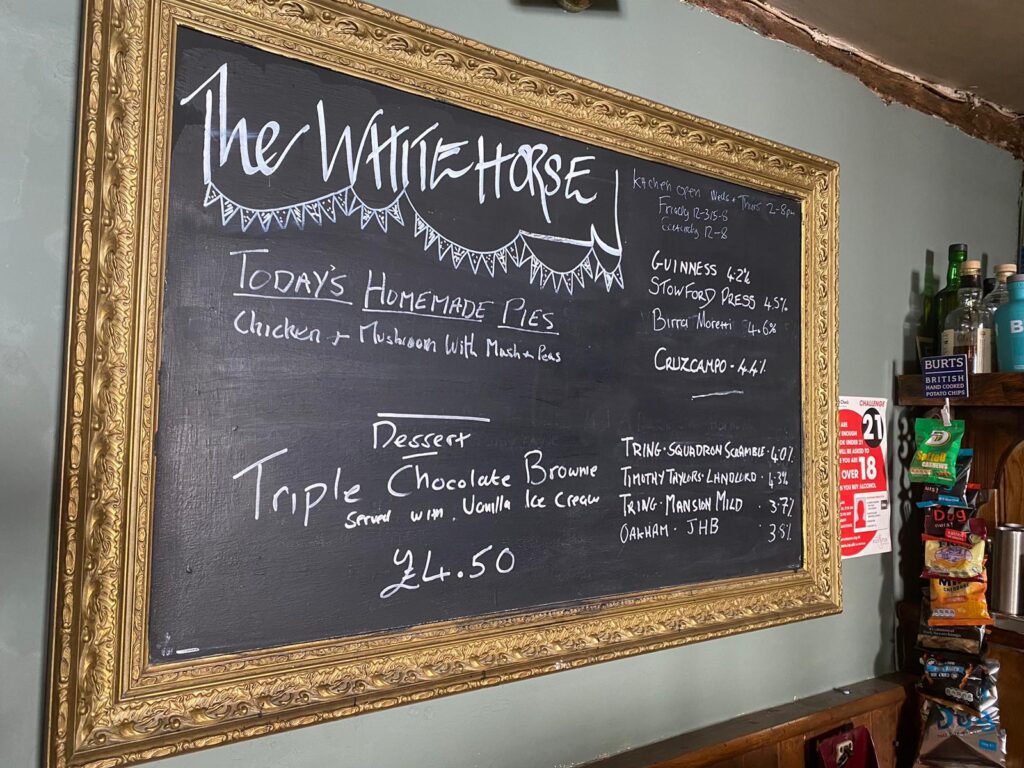 The WHITE HORSE
Kitchen open Weds + Thurs 2-8pm
Friday 12-3 5-8
Saturday 12-8
TODAY'S HOMEMADE PIES
Chicken + Mushroom With Mash + Peas
GUINNESS 4.2%
STOWFORD PRESS 4.5%
Birra Moretti 4.6%
CRUZCAMPO - 4.4%
Dessert
Triple Chocolate Brownie
Served with Vanilla Ice Cream
£4.50
TRING · SQUADRON SCRAMBLE · 4.0%
TIMOTHY TAYLORS · LANDLORD · 4.3%
TRING · MANSION MILD · 3.7%
OAKHAM · JHB · 3.8%
BURTS
BRITISH
HAND COOKED
POTATO CHIPS
CHALLENGE
21
OVER 18
YOU BUY ALCOHOL